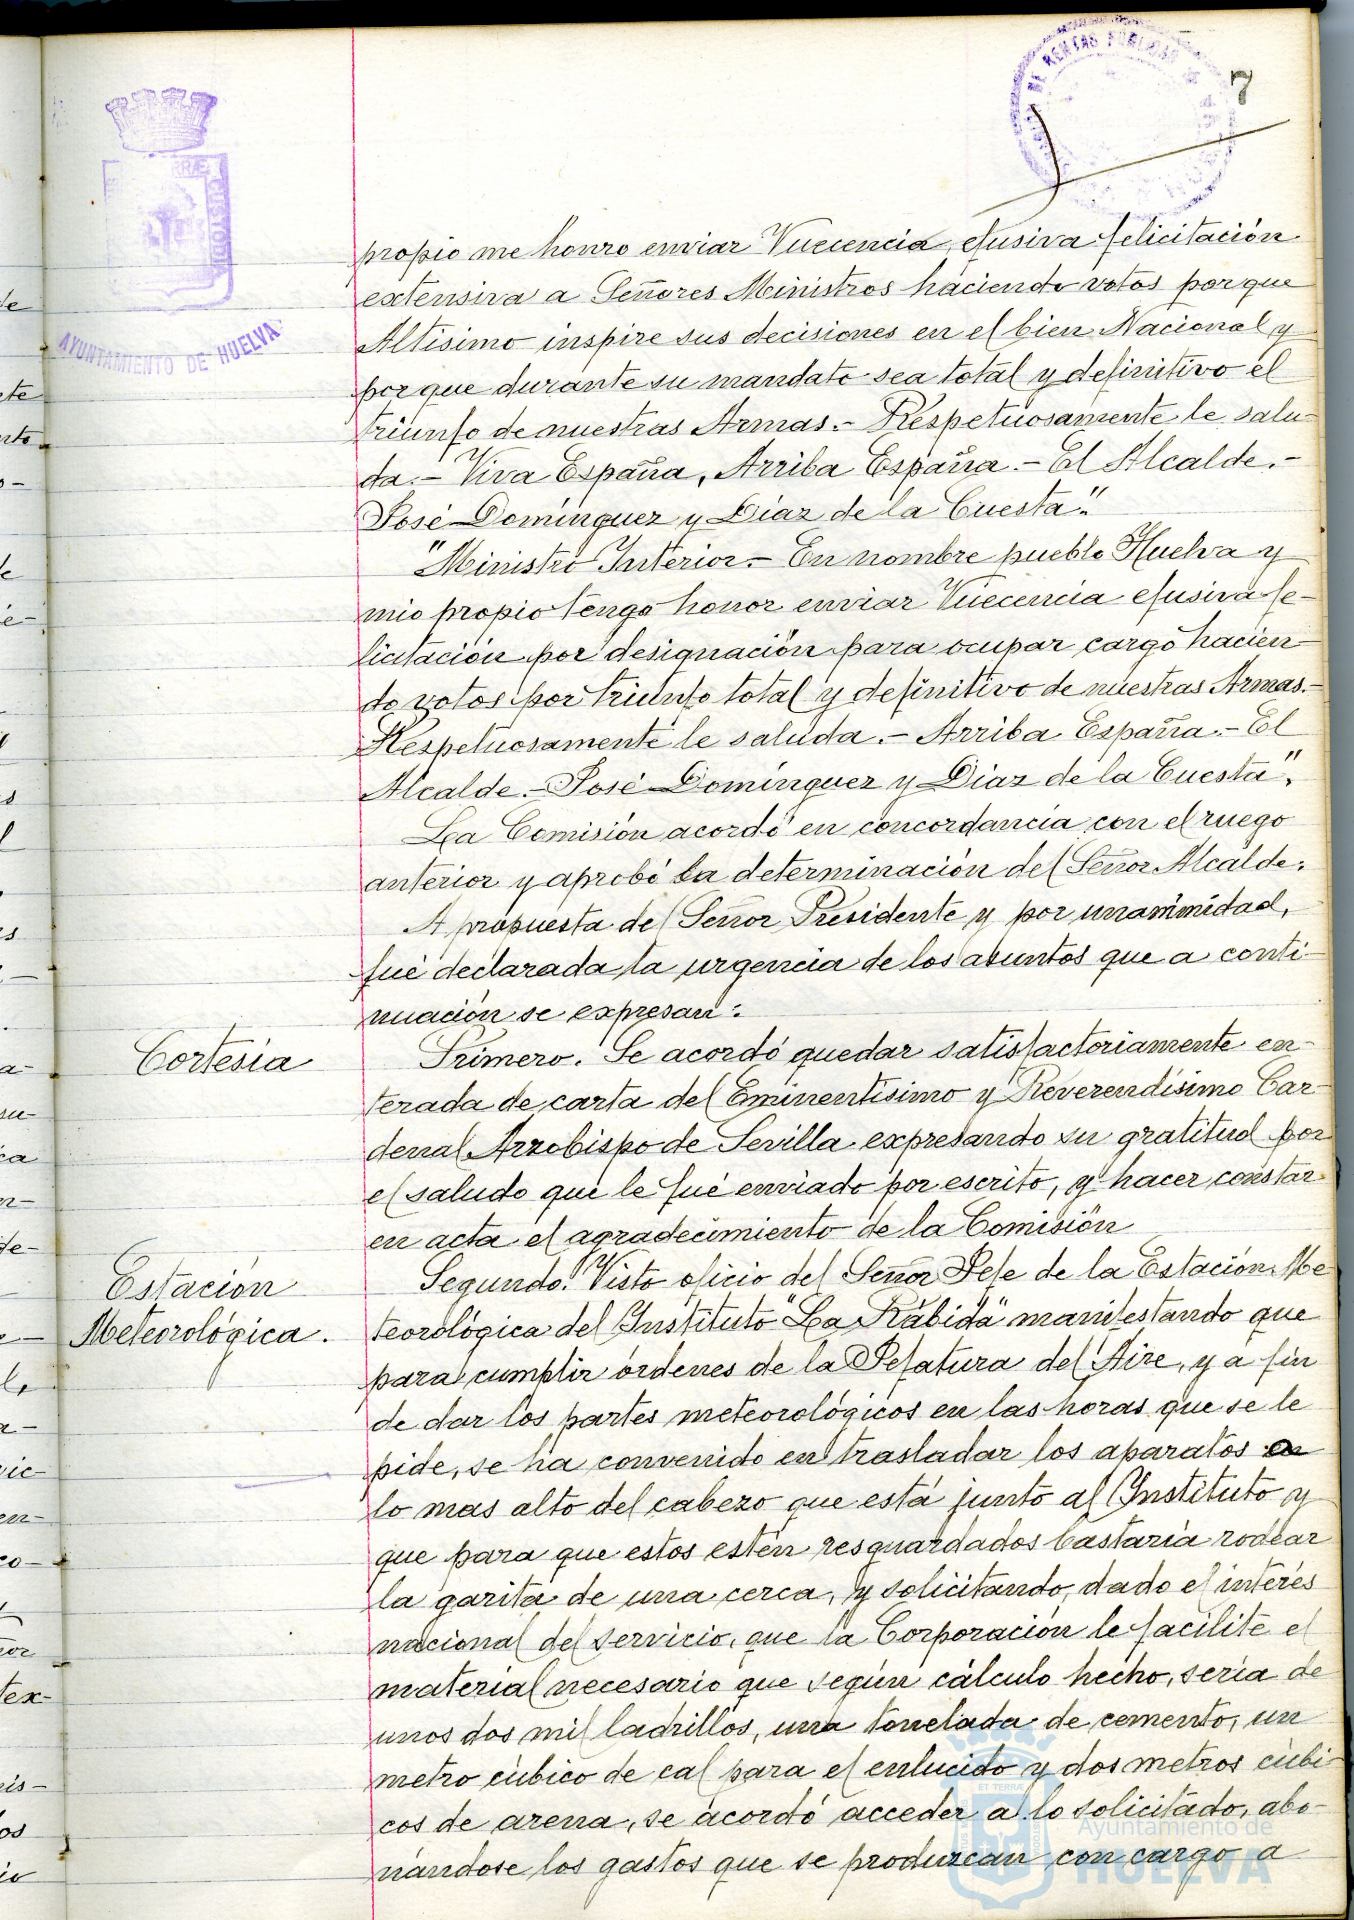 7
AYUNTAMIENTO DE HUELVA
propio me honro enviar Vuecencia efusiva felicitación
extensiva a Señores Ministros haciendo votos porque
Altisimo inspire sus decisiones en el bien Nacional y
porque durante su mandato sea total y definitivo el
triunfo de nuestras Armas.- Respetuosamente le salu-
da.- Viva España, Arriba España.- El Alcalde.-
José Domínguez y Díaz de la Cuesta."
"Ministro Interior.- En nombre pueblo Huelva y
mio propio tengo honor enviar Vuecencia efusiva fe-
licitación por designación para ocupar cargo hacien-
do votos por triunfo total y definitivo de nuestras Armas.-
Respetuosamente le saluda.- Arriba España.- El
Alcalde.- José Domínguez y Díaz de la Cuesta".
La Comisión acordó en concordancia con el ruego
anterior y aprobó la determinación del Señor Alcalde.
A propuesta del Señor Presidente y por unanimidad,
fué declarada la urgencia de los asuntos que a conti-
nuación se expresan:
Cortesía
Primero. Se acordó quedar satisfactoriamente en-
terada de carta del Eminentísimo y Reverendísimo Car-
denal Arzobispo de Sevilla expresando su gratitud por
el saludo que le fué enviado por escrito, y hacer constar
en acta el agradecimiento de la Comisión
Estación
Meteorológica.
Segundo. Visto oficio del Señor Jefe de la Estación Me-
teorológica del Instituto "La Rábida" manifestando que
para cumplir órdenes de la Jefatura del Aire, y a fin
de dar los partes meteorológicos en las horas que se le
pide, se ha convenido en trasladar los aparatos a
lo mas alto del cabezo que está junto al Instituto y
que para que estos estén resguardados bastaría rodear
la garita de una cerca, y solicitando, dado el interés
nacional del servicio, que la Corporación le facilite el
material necesario que según cálculo hecho, sería de
unos dos mil ladrillos, una tonelada de cemento, un
metro cúbico de cal para el enlucido y dos metros cúbi-
cos de arena, se acordó acceder a lo solicitado, abo-
nándose los gastos que se produzcan con cargo a
Ayuntamiento de
HUELVA